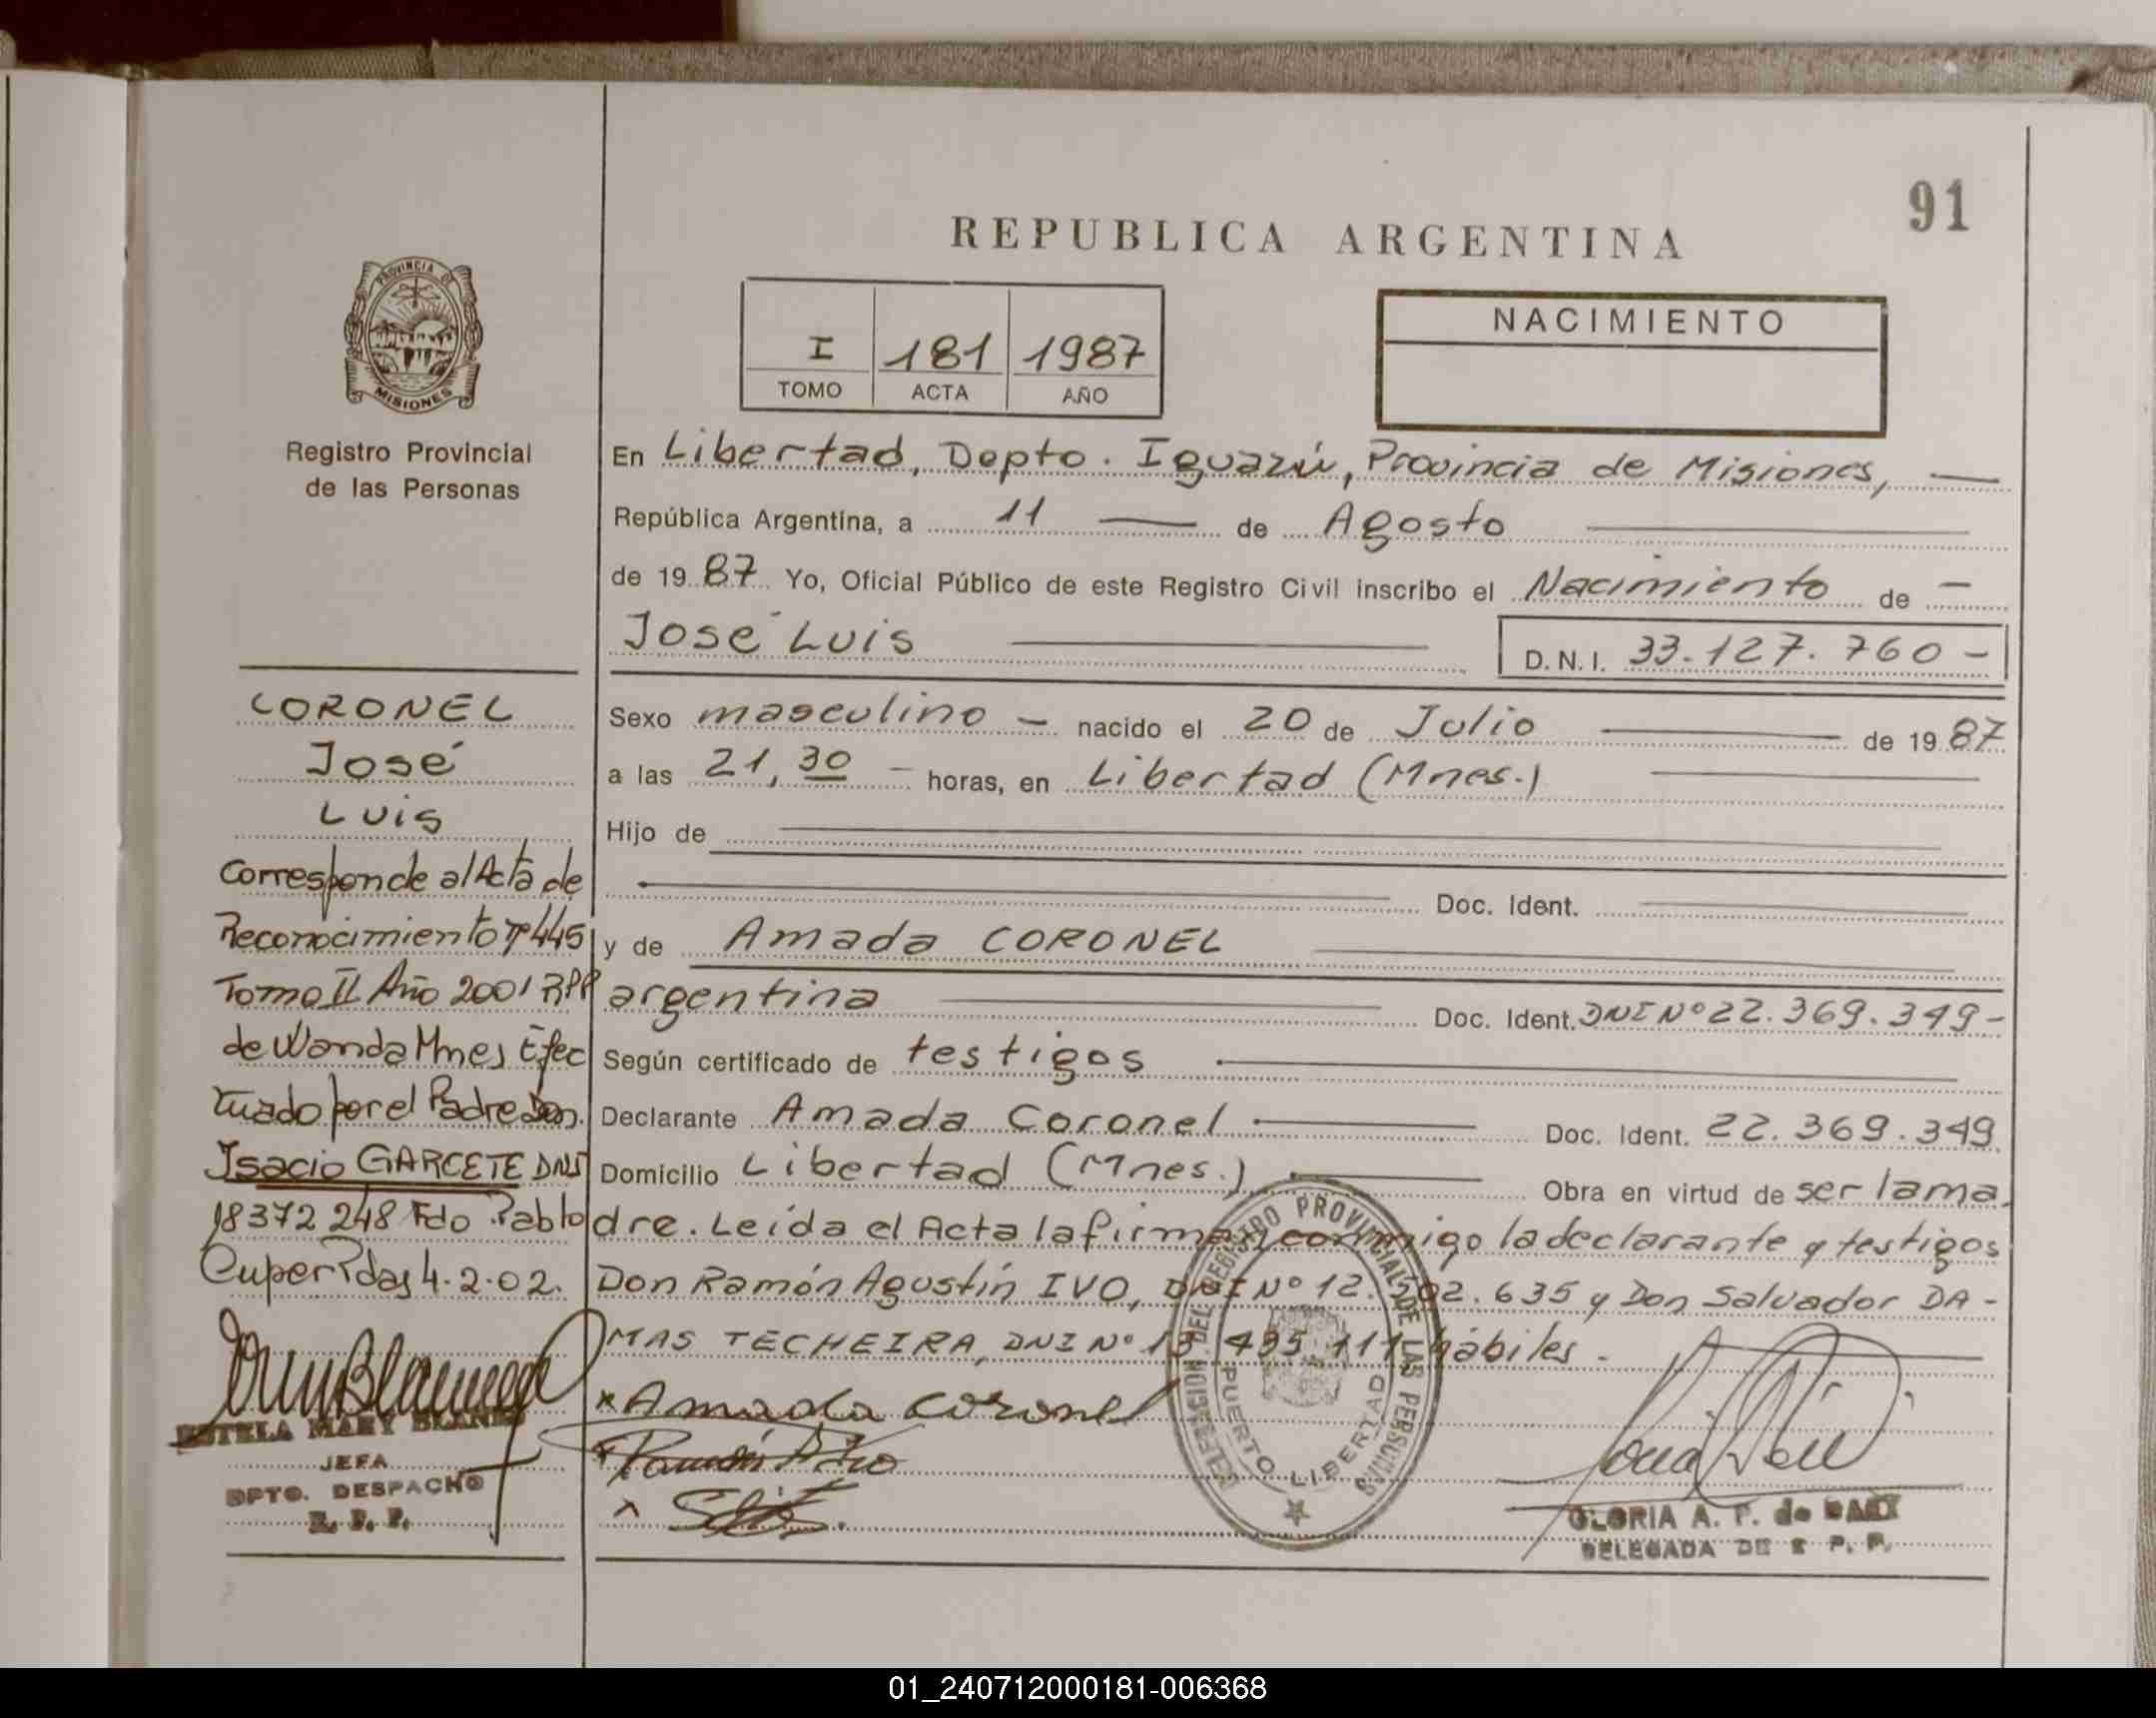 91
REPUBLICA ARGENTINA
I 181 1987
TOMO ACTA AÑO
NACIMIENTO
PROVINCIA DE
MISIONES
Registro Provincial
de las Personas
CORONEL
José
Luis
Corresponde al Acta de
Reconocimiento Nº 445
Tomo II Año 2001 RPP
de Wanda Mnes Efec
tuado por el Padre Don.
Isacio GARCETE DNI
18372 248 Fdo. Pablo
Cuper Pdas 4.2.02.
ESTELA MARY
JEFA
DPTO. DESPACHO
R. P. P.
En Libertad, Depto. Iguazú, Provincia de Misiones,
República Argentina, a 11 de Agosto
de 1987 Yo, Oficial Público de este Registro Civil inscribo el Nacimiento de
José Luis D.N.I. 33.127.760-
Sexo masculino - nacido el 20 de Julio de 1987
a las 21,30 - horas, en Libertad (Mnes.)
Hijo de
Doc. Ident.
y de Amada CORONEL
argentina Doc. Ident. DNI Nº 22.369.349-
Según certificado de testigos
Declarante Amada Coronel Doc. Ident. 22.369.349
Domicilio Libertad (Mnes.) Obra en virtud de ser la ma-
dre. Leída el Acta la firman conmigo la declarante y testigos
Don Ramón Agustín IVO, DNI Nº 12. .635 y Don Salvador DA-
MAS TECHEIRA, DNI Nº 13 495 111, hábiles.
x Amada Coronel
x Ramón A Ivo
x
DELEGACION DEL REGISTRO PROVINCIAL DE LAS PERSONAS
PUERTO LIBERTAD
GLORIA A. P. de
DELEGADA DE R. P. P.
01_240712000181-006368